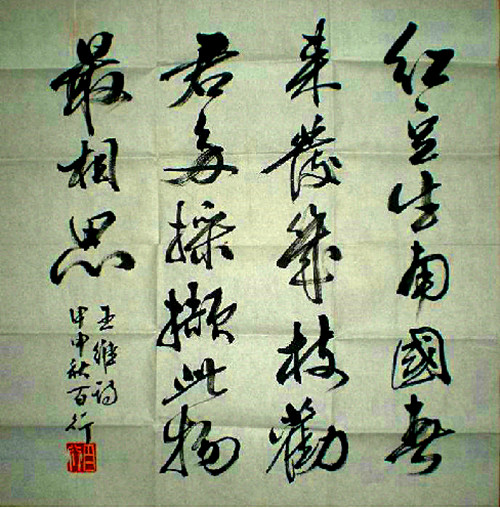 红豆生南國春
来發幾枝勸
君多採擷此物
最相思
王維詩
甲申秋百行